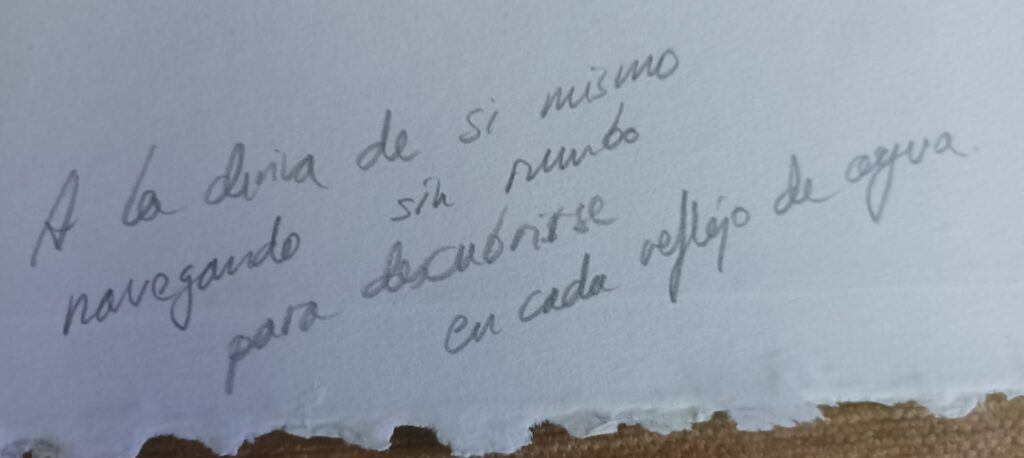 A la deriva de si mismo
navegando sin rumbo
para descubrirse
en cada reflejo de agua.